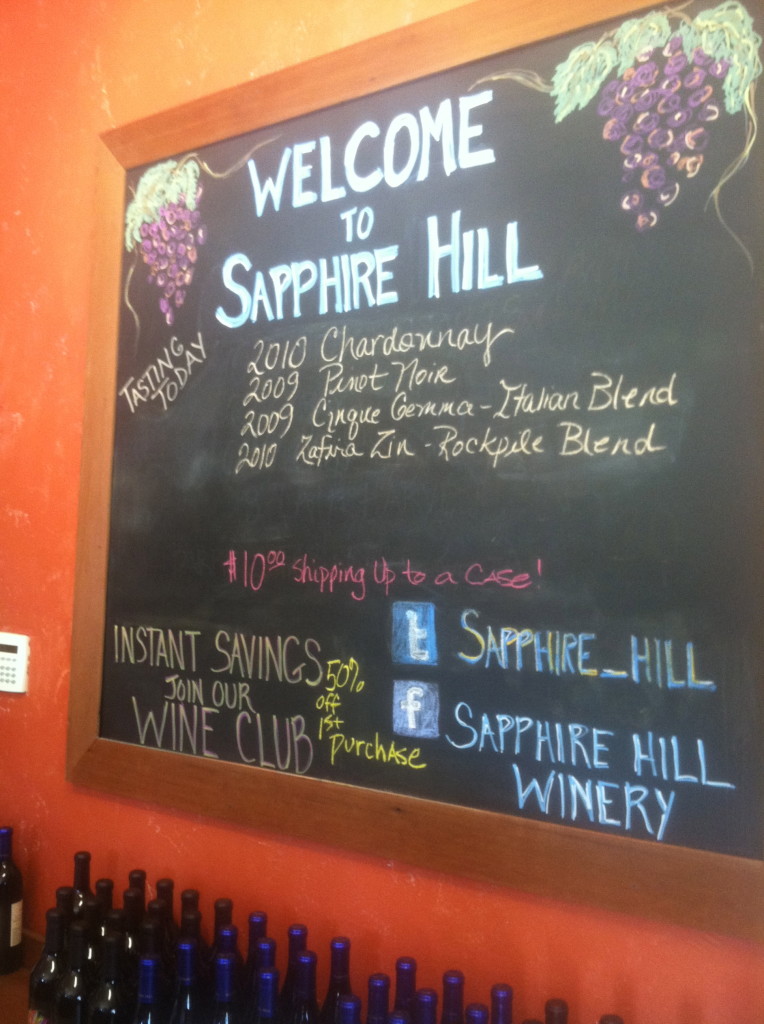 WELCOME
TO
SAPPHIRE HILL
TASTING
TODAY
2010 Chardonnay
2009 Pinot Noir
2009 Cinque Gemma - Italian Blend
2010 Zafira Zin - Rockpile Blend
$10.00 Shipping Up to a CASE!
INSTANT SAVINGS
JOIN OUR
WINE CLUB
50%
off
1st
purchase
t SAPPHIRE_HILL
f SAPPHIRE HILL
WINERY